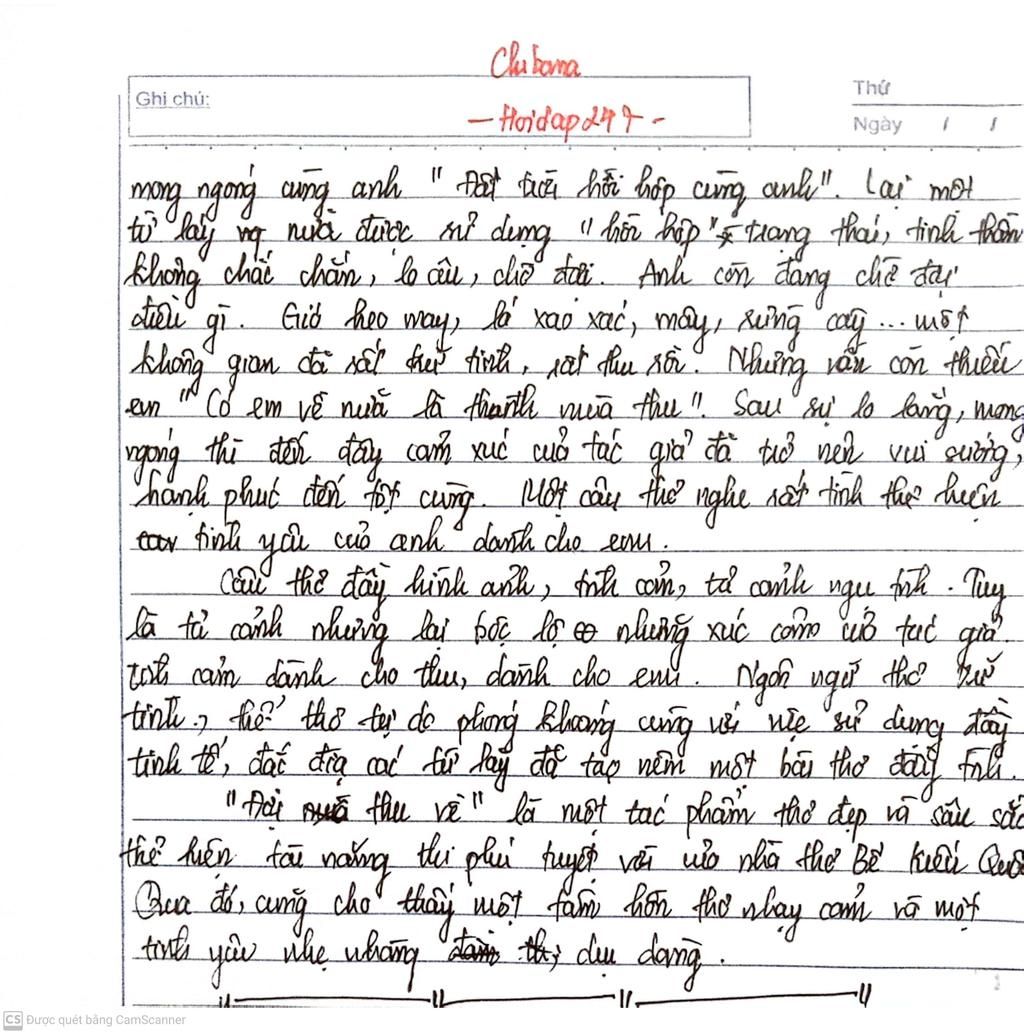 Chibona
Ghi chú:
Thứ
- Hoidap247 -
Ngày / /
mong ngóng cùng anh " Đất trời hồi hộp cùng anh". Lại một
từ láy nữa được sử dụng "hồi hộp" trạng thái, tinh thần
không chắc chắn, lo âu, chờ đợi. Anh còn đang chờ đợi
điều gì. Gió heo may, lá xao xác, mây, rừng cây ... một
không gian đã rất trữ tình, rất thu rồi. Nhưng vẫn còn thiếu
em " Có em về nữa là thành mùa thu". Sau sự lo lắng, mong
ngóng thì đến đây cảm xúc của tác giả đã trở nên vui sướng,
hạnh phúc đến tột cùng. Một câu thơ nghe rất tình thể hiện
tình yêu của anh dành cho em.
Câu thơ đầy hình ảnh, tình cảm, tả cảnh ngụ tình. Tuy
là tả cảnh nhưng lại bộc lộ những xúc cảm của tác giả.
Tình cảm dành cho thu, dành cho em. Ngôn ngữ thơ trữ
tình, thể thơ tự do phóng khoáng cùng với việc sử dụng đầy
tinh tế, đắc địa các từ láy đã tạo nên một bài thơ đầy tình.
"Đợi thu về" là một tác phẩm thơ đẹp và sâu sắc
thể hiện tài năng thi phú tuyệt vời của nhà thơ Bế Kiến Quốc
Qua đó, cũng cho thấy một tâm hồn thơ nhạy cảm và một
tình yêu nhẹ nhàng dịu dàng.
CS Được quét bằng CamScanner